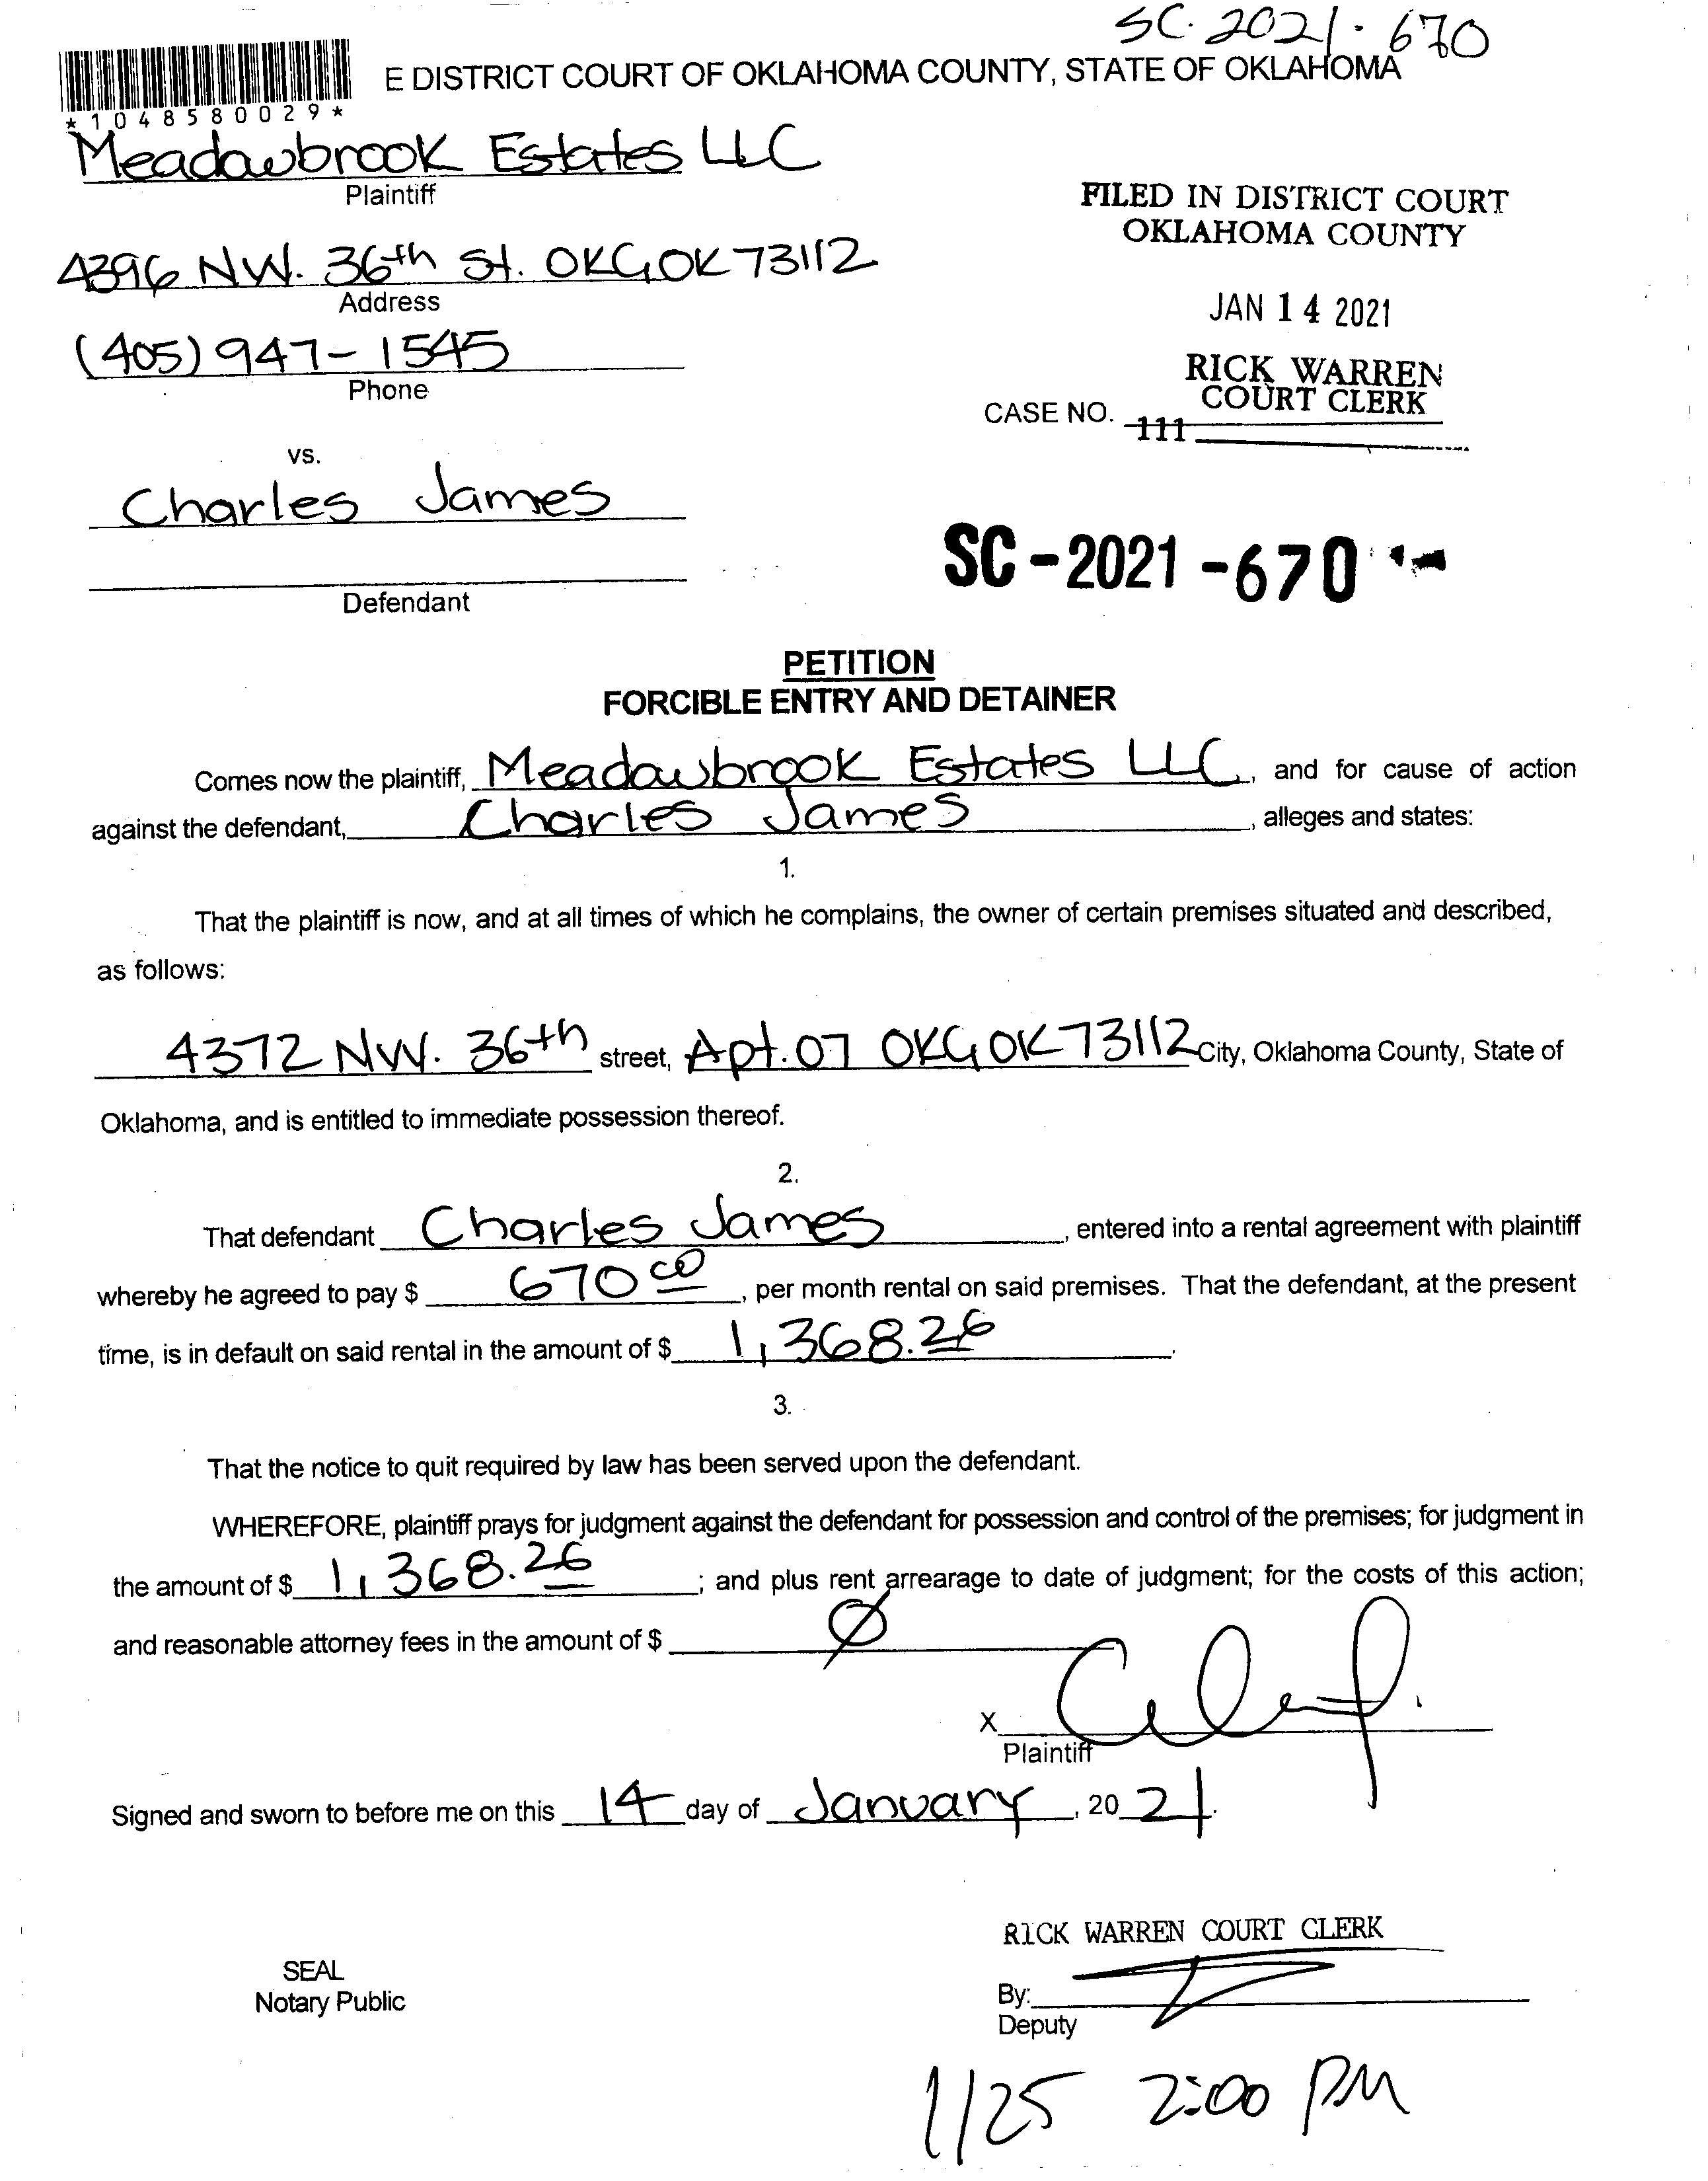 SC-2021-670
E DISTRICT COURT OF OKLAHOMA COUNTY, STATE OF OKLAHOMA
*1048580029*
Meadowbrook Estates LLC
Plaintiff
FILED IN DISTRICT COURT
OKLAHOMA COUNTY
4396 NW. 36th St. OKC, OK 73112
Address
JAN 14 2021
(405) 947-1545
Phone
RICK WARREN
COURT CLERK
CASE NO.
111
vs.
Charles James
SC-2021-670
Defendant
PETITION
FORCIBLE ENTRY AND DETAINER
Comes now the plaintiff, Meadowbrook Estates LLC, and for cause of action
against the defendant, Charles James, alleges and states:
1.
That the plaintiff is now, and at all times of which he complains, the owner of certain premises situated and described,
as follows:
4372 NW. 36th street, Apt. 07 OKC, OK 73112 City, Oklahoma County, State of
Oklahoma, and is entitled to immediate possession thereof.
2.
That defendant Charles James, entered into a rental agreement with plaintiff
whereby he agreed to pay $ 670 00, per month rental on said premises. That the defendant, at the present
time, is in default on said rental in the amount of $ 1,368.26.
3.
That the notice to quit required by law has been served upon the defendant.
WHEREFORE, plaintiff prays for judgment against the defendant for possession and control of the premises; for judgment in
the amount of $ 1,368.26; and plus rent arrearage to date of judgment; for the costs of this action;
and reasonable attorney fees in the amount of $ Ø
X
Plaintiff
Signed and sworn to before me on this 14 day of January, 2021.
RICK WARREN COURT CLERK
SEAL
Notary Public
By:
Deputy
1/25 2:00 PM